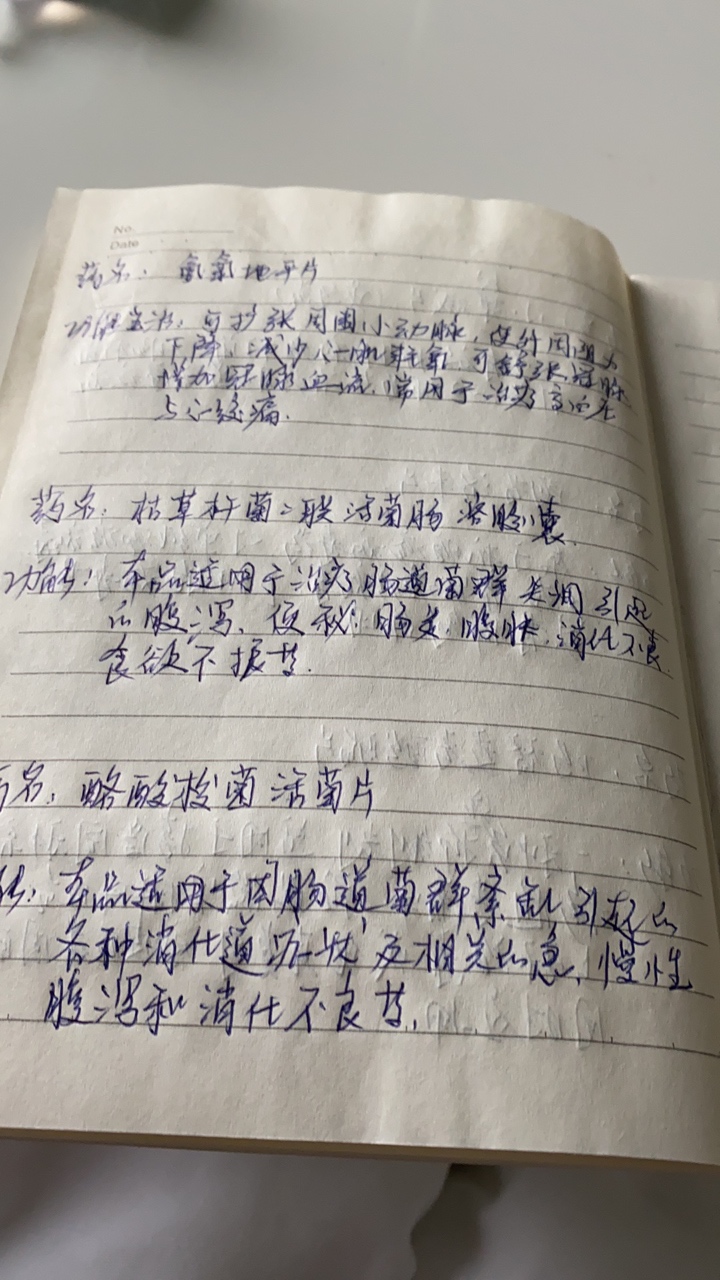 No.
Date
药名: 氨氯地平片
功能主治: 可扩张周围小动脉,使外周阻力
下降,减少心肌耗氧,可舒张冠脉
增加冠脉血流,常用于治疗高血压
与心绞痛.
药名: 枯草杆菌二联活菌肠溶胶囊.
功能: 本品适用于治疗肠道菌群失调引起
的腹泻、便秘、肠炎、腹胀、消化不良
食欲不振等.
名: 酪酸梭菌活菌片
本品适用于因肠道菌群紊乱引起的
各种消化道症状及相关的急、慢性
腹泻和消化不良等.